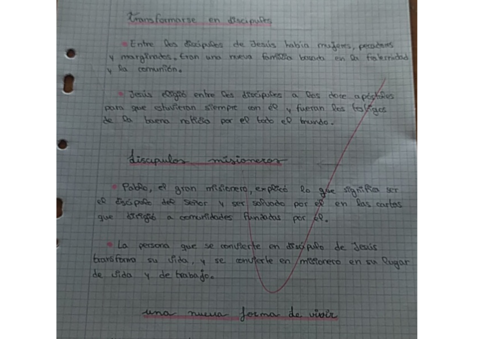 transformarse en discipulos
Entre los discipulos de Jesús había mujeres, pecadores
y marginados, eran una nueva familia basada en la fraternidad
y la comunión.
Jesús eligió entre los discipulos a los doce apóstoles
para que estuvieran siempre con él y fueran los testigos
de la buena noticia por el todo el mundo.
discipulos misioneros
Pablo, el gran misionero, explicó lo que significa ser
el discipulo del señor y ser salvado por él en las cartas
que dirigió a comunidades fundadas por él.
La persona que se convierte en discipulo de Jesús
transforma su vida, y se convierte en misionero en su lugar
de vida y de trabajo.
una nueva forma de vivir